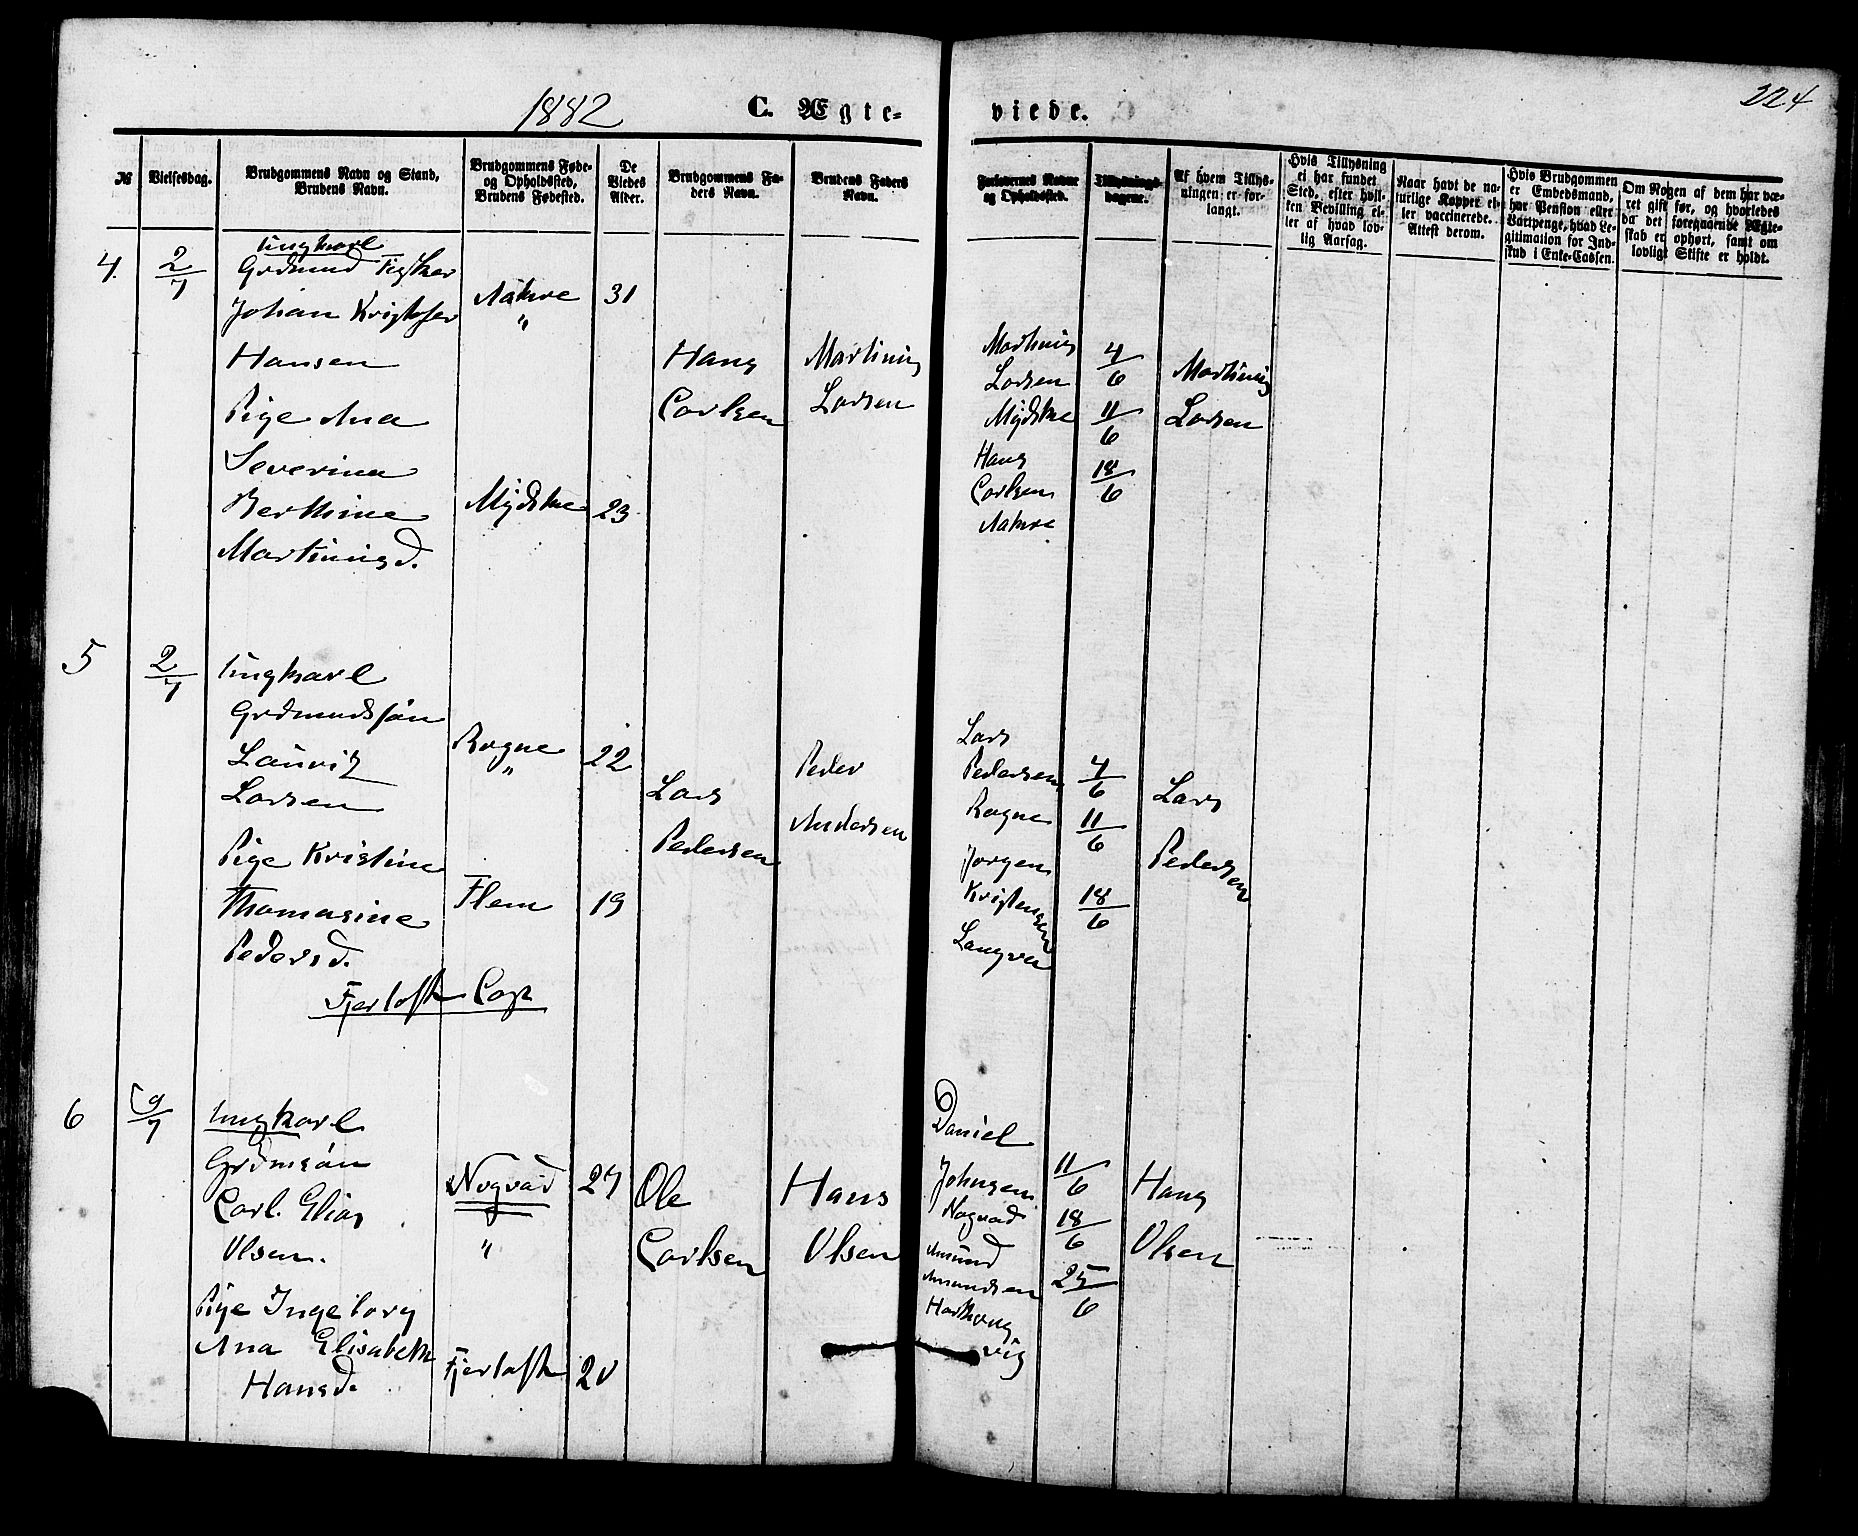 1882
C. Ægte-
viede.
224
№
Vielsesdag.
Brudgommens Navn og Stand,
Brudens Navn.
Brudgommens Føde-
og Opholdssted,
Brudens Fødested.
De
Viedes
Alder.
Brudgommens Fa-
ders Navn.
Brudens Faders
Navn.
Forlovernes Navne
og Opholdssted.
Tillysnings-
dagene.
Af hvem Tillys-
ningen er for-
langt.
Hvis Tillysning
ei har fundet
Sted, efter hvil-
ken Bevilling el-
ler af hvad lov-
lig Aarsag.
Naar havt de na-
turlige Kopper el-
ler vaccinerede.
Attest derom.
Hvis Brudgommen
er Embedsmand,
har Pension eller
Vartpenge, hvad Le-
gitimation for Ind-
skud i Enke-Cassen.
Om Nogen af dem har væ-
ret gift før, og hvorledes
da det foregaaende Ægte-
skab er ophørt, samt om
lovligt Skifte er holdt.
4.
2/7
Ungkarl
Grdmand Fisker
Johan Kristofer
Hansen
Pige Ana
Severina
Berthine
Martinusd.
Aakre
"
Mydske
31
23
Hans
Carlsen
Martinus
Larsen
Martinus
Larsen
Mydske
Hans
Carlsen
Aakre
4/6
11/6
18/6
Martinus
Larsen
5
2/7
Ungkarl
Grdmandssøn
Lauritz
Larsen
Pige Kristine
Thomasine
Pedersd.
Rogne
"
Flem
22
19
Lars
Pedersen
Peder
Andersen
Lars
Pedersen
Rogne
Jørgen
Kristensen
Langva
4/6
11/6
18/6
Lars
Pedersen
Fjørtoft Cap
6
9/7
Ungkarl
Grdmsøn
Carl Elias
Olsen.
Pige Ingeborg
Ana Elisabeth
Hansd.
Nogvad
"
Fjørtoft
27
20
Ole
Carlsen
Hans
Olsen
Daniel
Johnsen
Nogvad
Amund
Amundsen
Harthong
vig
11/6
18/6
25/6
Hans
Olsen